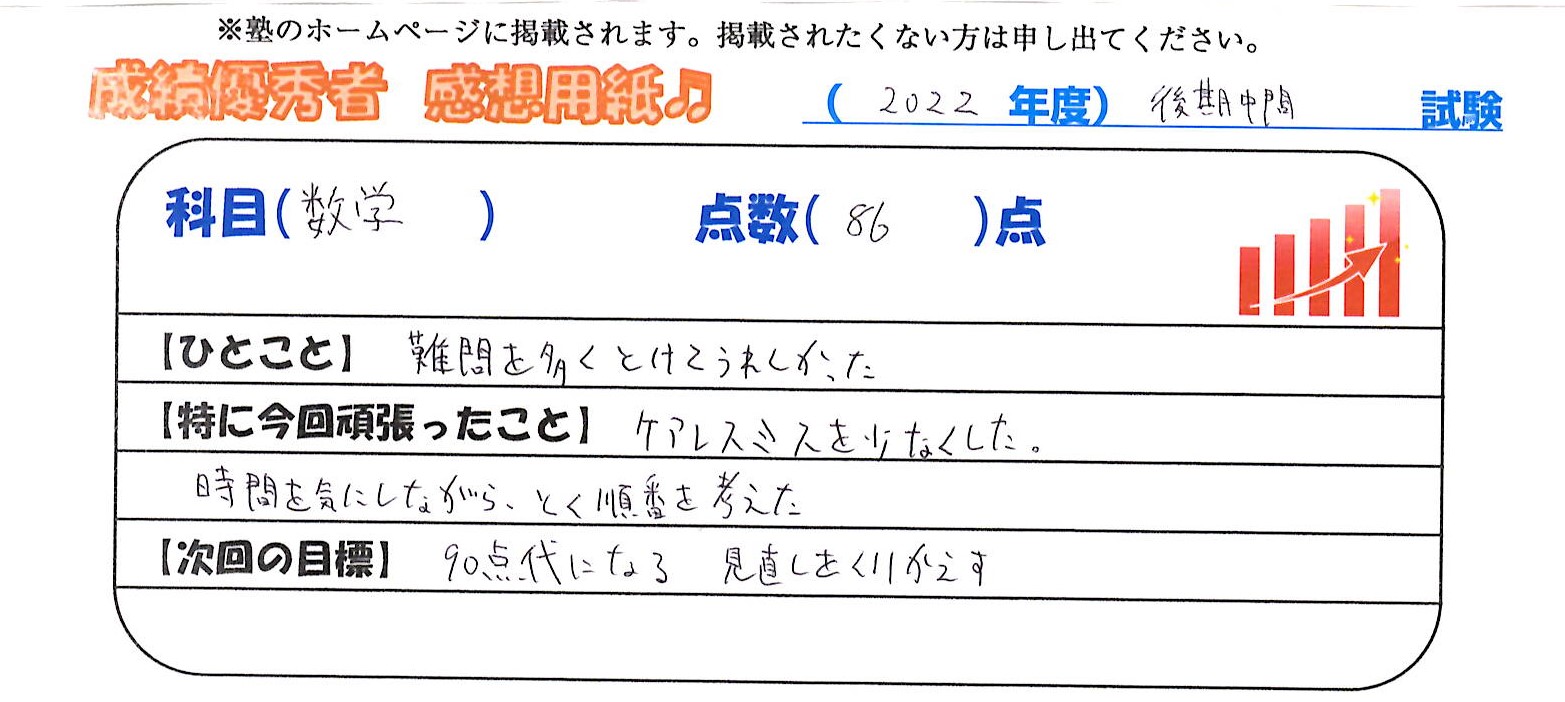 ※塾のホームページに掲載されます。掲載されたくない方は申し出てください。
成績優秀者 感想用紙♫ ( 2022 年度) 後期中間 試験
科目(数学 ) 点数( 86 )点
【ひとこと】 難問を多くとけてうれしかった
【特に今回頑張ったこと】 ケアレスミスを少なくした。
時間を気にしながら、とく順番を考えた
【次回の目標】 90点代になる 見直しをくりかえす